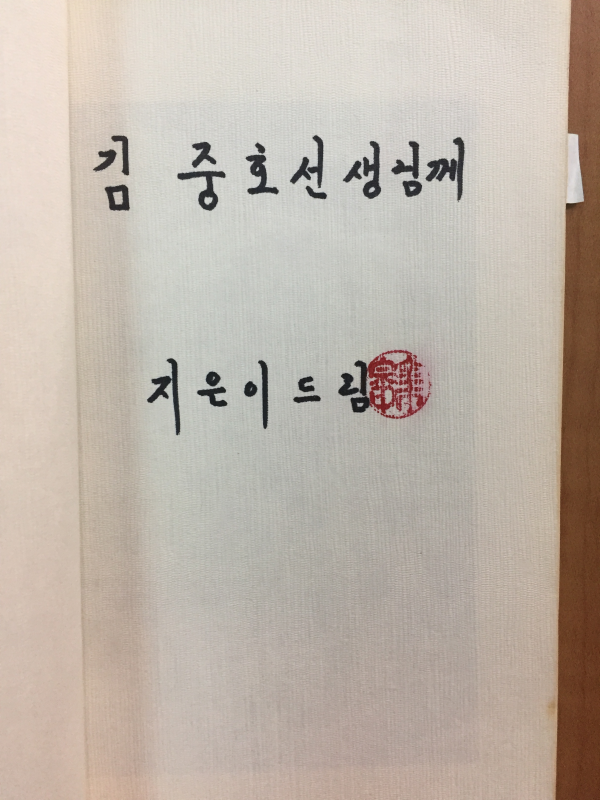 김 중호선생님께
지은이드림